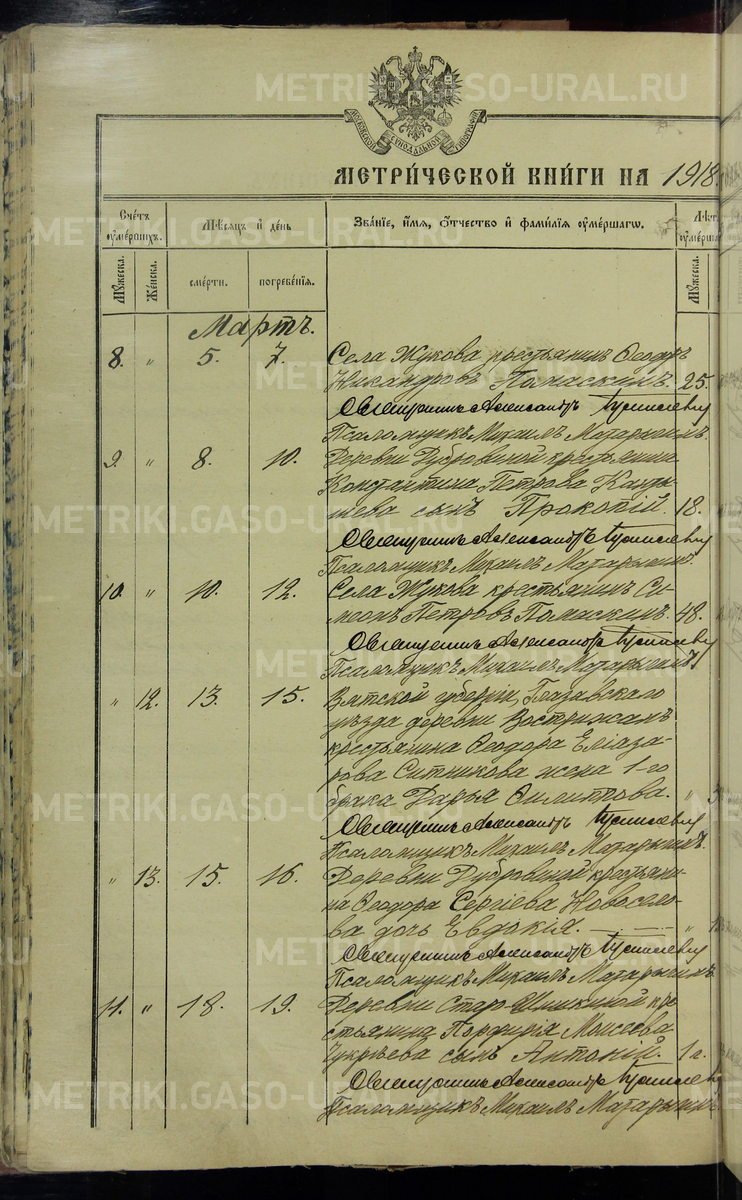 METRIKI.GASO-URAL.RU
МОСКОВСКОЙ СѴНОДАЛЬНОЙ ТИПОГРАФІИ
МЕТРИ́ЧЕСКОЙ КНИ́ГИ НА 1918
Счетъ ᲂумершихъ.
Мѣсяцъ и день
Званіе, имя, отчество и фамилія ᲂумершагѡ.
Лѣт
ᲂумерша
Мужеска.
Женска.
смерти.
погребенія.
Мужеска.
Мартъ.
8. " 5. 7. Села Жукова крестьянинъ Ѳеодръ
Никандровъ Помаскинъ. 25.
Священникъ Александръ
Псаломщикъ Михаилъ Матарыгинъ.
9. " 8. 10. Деревни Дубровиной крестьянина
Константина Петрова
сынъ Прокопій. 18.
Священникъ Александръ
Псаломщикъ Михаилъ Матарыгинъ.
10. " 10. 12. Села Жукова крестьянинъ Си-
меонъ Петровъ Помаскинъ. 48.
Священникъ Александръ
Псаломщикъ Михаилъ Матарыгинъ
" 12. 13. 15. Вятской губерніи, Глазовскаго
уѣзда деревни
крестьянина Ѳеодора Еліаза-
рова Ситникова жена 1-го
брака Дарья Филиппова. "
Священникъ Александръ
Псаломщикъ Михаилъ Матарыгинъ.
" 13. 15. 16. Деревни Дубровиной крестьяни-
на Ѳеодора Сергіева Новосело-
ва дочь Евдокія. "
Священникъ Александръ
Псаломщикъ Михаилъ Матарыгинъ
11. " 18. 19. Деревни Стар- кре-
стьянина Порфирія Моисеева
сынъ Антоній. 1 г.
Священникъ Александръ
Псаломщикъ Михаилъ Матарыгинъ